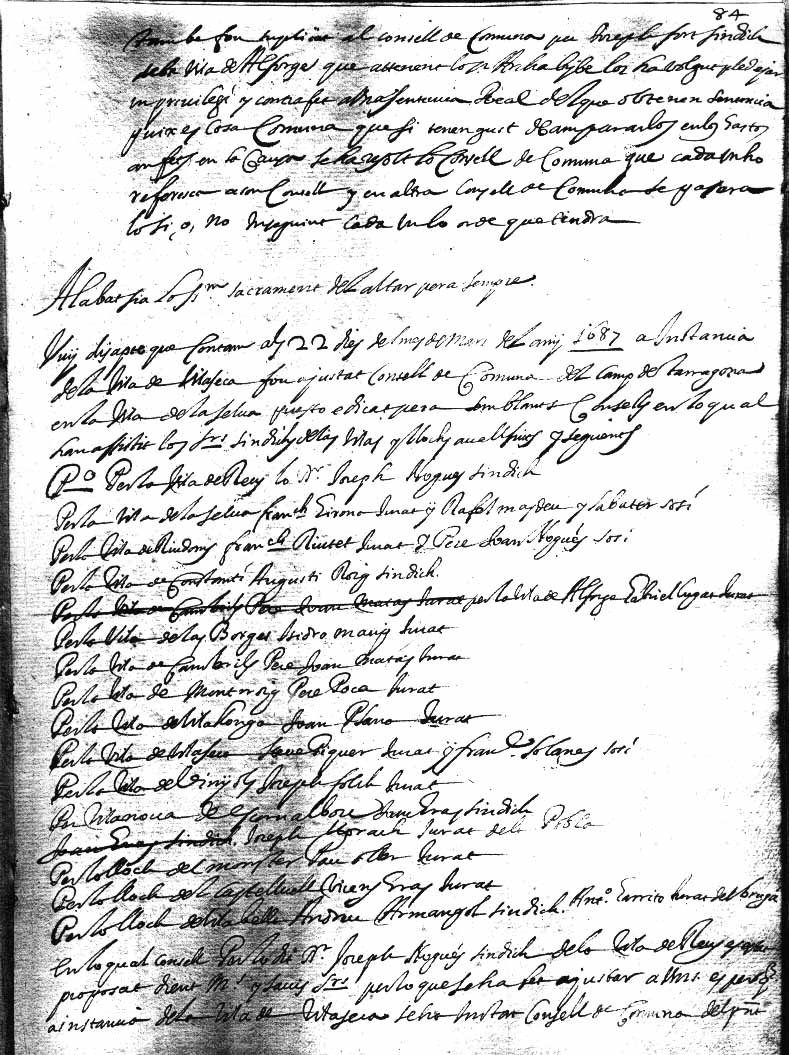 84
tambe fou suplicat al consell de Comuna per Joseph fort sindich
dela Vila de Alforja que attenent lo Sr Archabisbe los ha volgut pledejar
un privilegi y contrafet a una sentencia Real del que obtenen sentencia
y vix es Cosa Comuna que si tenen gust de ampararlos en los gastos
an fets en la Causa se ha resolt lo Consell de Comuna que cada unho
referesca a son Consell y en altra Consell de Comuna se
lo si, o, no cada un lo orde que tindra
Alabat sia lo Sm sacrament del altar pera sempre
Vuy disapte que Contam als 22 dies del mes de Mars del any 1687 a Instancia
de la Vila de Vilaseca fou ajustat Consell de Comuna del Camp de tarragona
en la Vila de la selva puesto dicat pera semblants Consells en lo qual
han assistit los Srs sindichs de las Vilas y llochs avall scrits y seguents
Po Per la Vila de Reus lo Sr Joseph Nogues sindich
Per la Vila de la selva franch Girona Jurat y Rafel magdeu y sabater sosi
Per la Vila de Riudoms franch Riutet Jurat y Pere Joan Nogués sosi
Per la Vila de Constantí Augusti Roig sindich.
Per la Vila de Cambrils Pere Joan Matas Jurat per la Vila de Alforja Gabriel Cugat Jurat
Per la Vila de las Borges Isidro Jurat
Per la Vila de Cambrils Pere Joan Matas Jurat
Per la Vila de Montroig Pere Roca Jurat
Per la Vila de Vilallonga Joan Plana Jurat
Per la Vila de Vilaseca Piquer Jurat y franch Solanes sosi
Per la Vila de Vinyols Joseph folch Jurat
Per Vilanova de Escornalbou Joan Gras sindich
Joan Gras sindich. Joseph Jurat dela Pobla
Per lo lloch del Pau oller Jurat
Per lo lloch de Castellvell Vicens Gras Jurat
Per lo lloch de Vilabella Andreu Armangol sindich. Anto. Jurat
En lo qual Consell Per lo dit Sr Joseph Nogués sindich dela Vila de Reus
proposat dient Ms y savis Srs per lo que se ha fet ajustar a Vms es per
a instancia dela Vila de Vilaseca se ha Instat Consell de Comuna del pnt